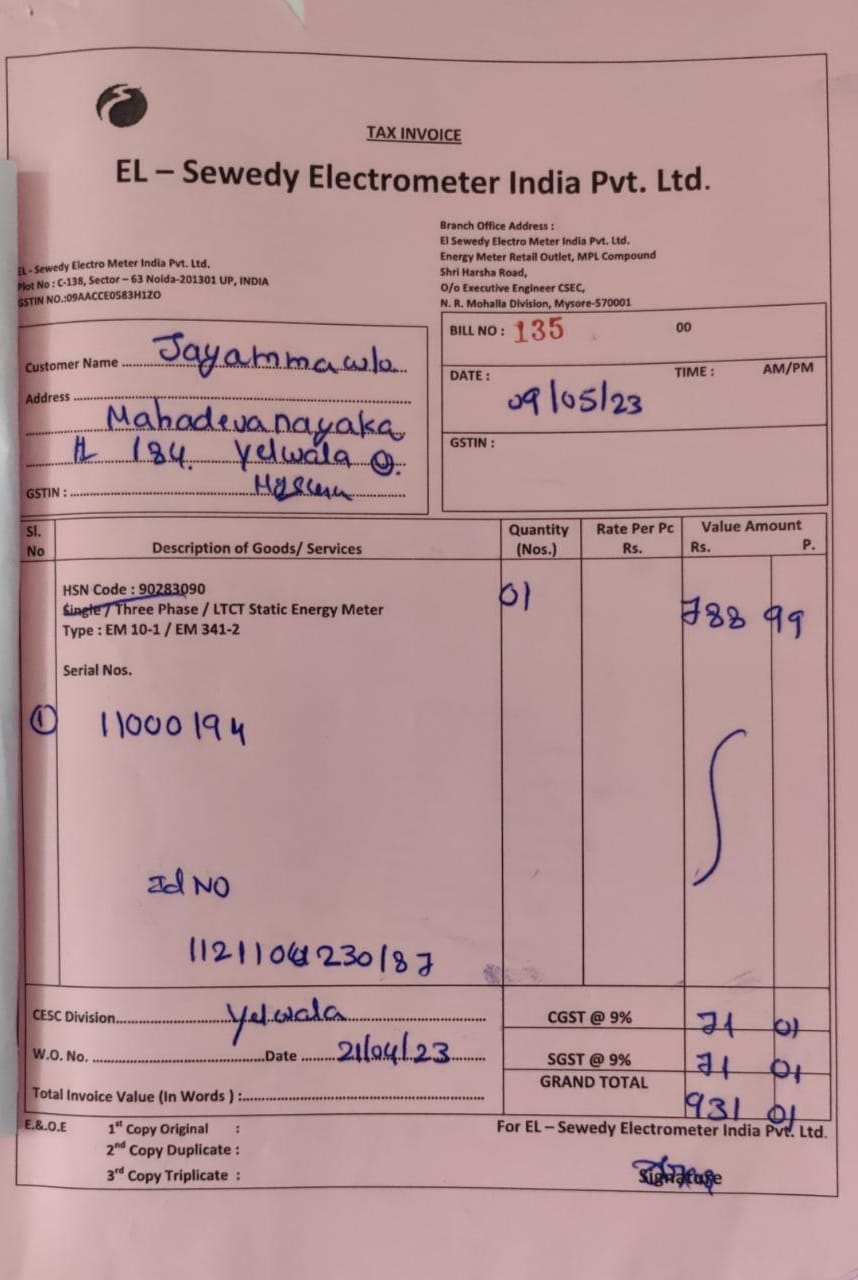 TAX INVOICE
EL – Sewedy Electrometer India Pvt. Ltd.
EL - Sewedy Electro Meter India Pvt. Ltd.
Plot No : C-138, Sector – 63 Noida-201301 UP, INDIA
GSTIN NO.:09AACCE0583H1ZO
Branch Office Address :
El Sewedy Electro Meter India Pvt. Ltd.
Energy Meter Retail Outlet, MPL Compound
Shri Harsha Road,
O/o Executive Engineer CSEC,
N. R. Mohalla Division, Mysore-570001
Customer Name Jayamma w/o
Address
Mahadevanayaka
184. Yelwala
GSTIN :
BILL NO : 135 00
DATE : 09/05/23 TIME : AM/PM
GSTIN :
Sl. No Description of Goods/ Services Quantity (Nos.) Rate Per Pc Rs. Value Amount Rs. P.
HSN Code : 90283090 01 788 99
Single / Three Phase / LTCT Static Energy Meter
Type : EM 10-1 / EM 341-2
Serial Nos.
1 11000194
Id NO
CESC Division Yelwala CGST @ 9% 71 01
W.O. No. Date 21/04/23 SGST @ 9% 71 01
Total Invoice Value (In Words ) : GRAND TOTAL 931 01
E.&.O.E 1st Copy Original : For EL – Sewedy Electrometer India Pvt. Ltd.
2nd Copy Duplicate :
3rd Copy Triplicate : Signature